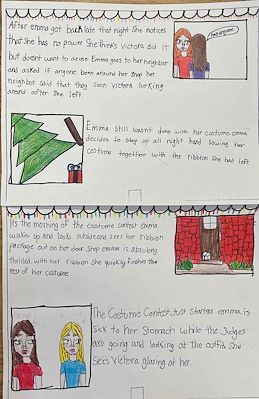 After emma got back late that night She notices
that She has no power She thinks victora did it
but doesnt want to acuse Emma goes to her neighbor
and asked if anyone been around her shop her
neighbor said that they seen victora lurking
around after she left.
Emma still wasnt done with her costume emma
decides to stay up all night hand sewing her
costume together with the ribbon she had left
It's the morning of the costume contest emma
wakes up and looks outside and sees her ribbion
package out on her door Step emma is absulouty
thrilled, with her ribbon She quickly finishes the
rest of her costume
The Costume Contest Just started emma is
sick to her Stomach while the Judges
are going and looking at the outfits She
Sees Victora glaring at her.